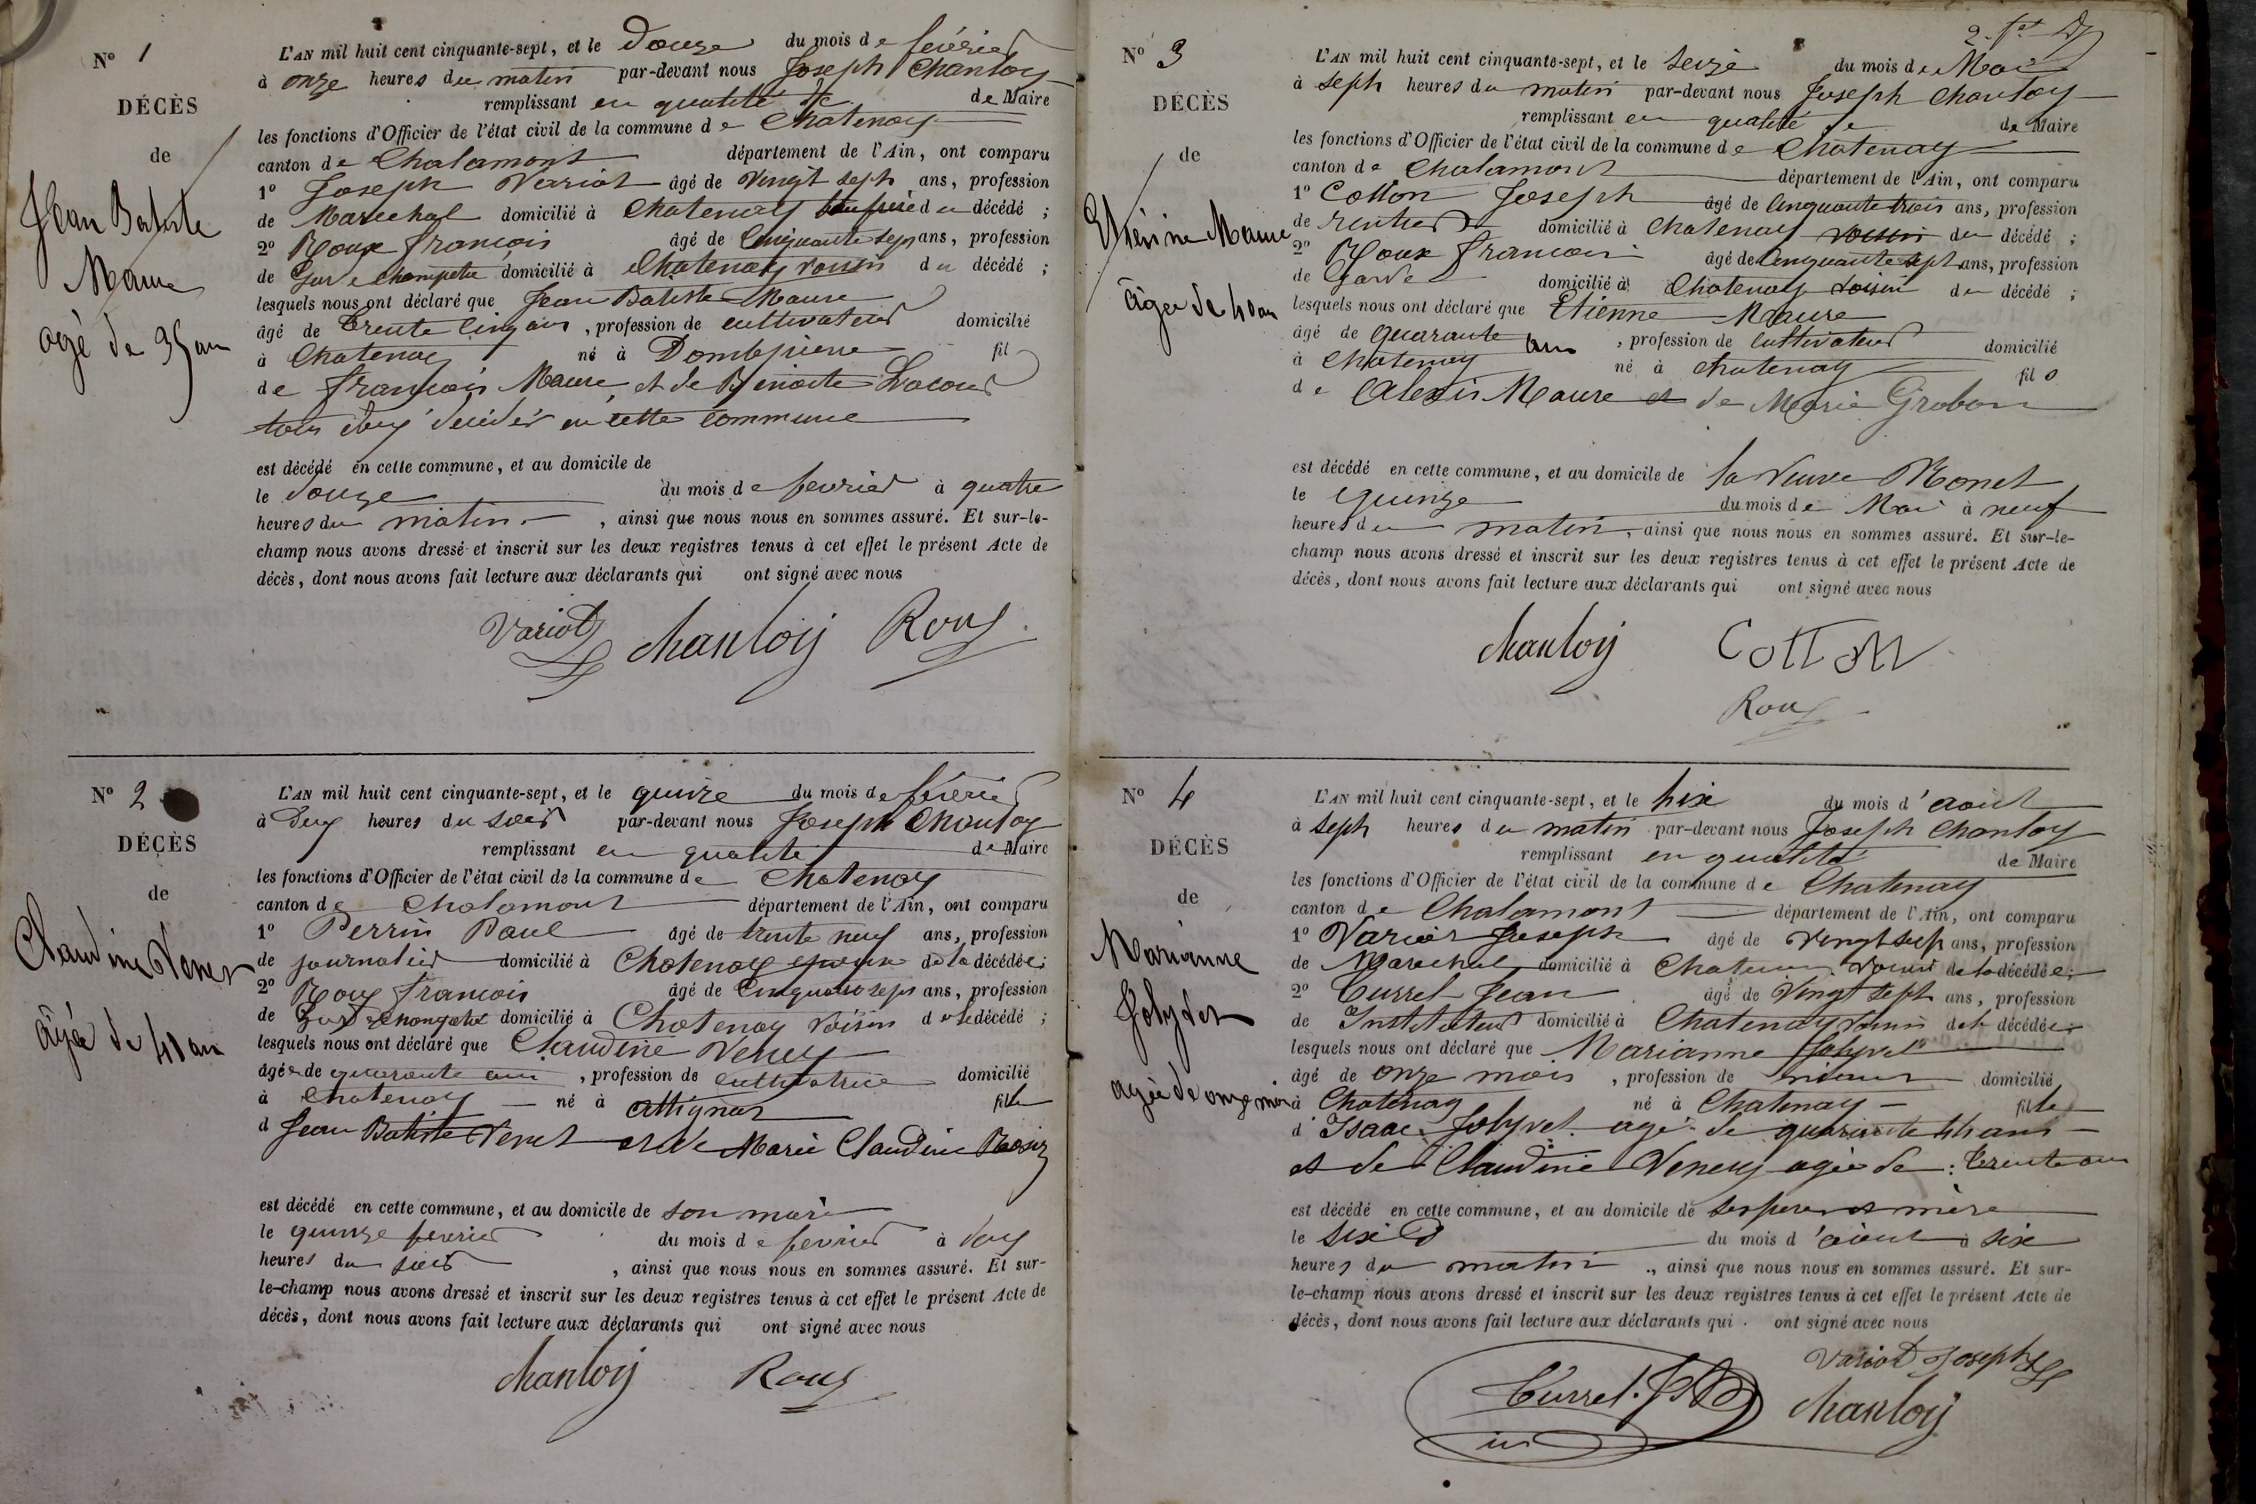 N° 1
DÉCÈS
de
Jean Batiste
Maure
agé de 35 an
L'AN mil huit cent cinquante-sept, et le douze du mois de février
à onze heures du matin par-devant nous Joseph Chanloy
remplissant en qualité de Maire
les fonctions d'Officier de l'état civil de la commune de Chatenay
canton de Chalamont département de l'Ain, ont comparu
1° Joseph Variot âgé de vingt seph ans, profession
de Marechal domicilié à Chatenay du décédé ;
2° Roux francois âgé de Cinquante sept ans, profession
de Garde Champetre domicilié à Chatenay voisin du décédé ;
lesquels nous ont déclaré que Jean Batiste Maure
âgé de trente cinq ans, profession de cultivateur domicilié
à Chatenay né à Dompierre fil
de françois Maure et de Benoite Lacour
tous deux décédés en cette commune
est décédé en cette commune, et au domicile de
le douze du mois de fevrier à quatre
heures du matin, ainsi que nous nous en sommes assuré. Et sur-le-
champ nous avons dressé et inscrit sur les deux registres tenus à cet effet le présent Acte de
décès, dont nous avons fait lecture aux déclarants qui ont signé avec nous
Variot Chanloy Roux
N° 2
DÉCÈS
de
Claudine Venet
âgée de 40 an
L'AN mil huit cent cinquante-sept, et le quinze du mois de février
à deux heures du soir par-devant nous Joseph Chanloy
remplissant en qualité de Maire
les fonctions d'Officier de l'état civil de la commune de Chatenay
canton de Chalamont département de l'Ain, ont comparu
1° Perrin Paul âgé de trente neuf ans, profession
de journalier domicilié à Chatenay de la décédée ;
2° Roux francois âgé de Cinquante sept ans, profession
de Garde Champetre domicilié à Chatenay voisin de le décédé ;
lesquels nous ont déclaré que Claudine Venet
âgée de quarante ans, profession de cultivatrice domicilié
à Chatenay né à Attignat fille
d Jean Batiste Venet et de Marie Claudine
est décédé en cette commune, et au domicile de son mari
le quinze fevrier du mois de fevrier à
heures du soir, ainsi que nous nous en sommes assuré. Et sur-
le-champ nous avons dressé et inscrit sur les deux registres tenus à cet effet le présent Acte de
décès, dont nous avons fait lecture aux déclarants qui ont signé avec nous
Chanloy Roux
N° 3
DÉCÈS
de
Etiénine Maure
âgée de 40 an
L'AN mil huit cent cinquante-sept, et le seize du mois de Mai
à seph heures du matin par-devant nous Joseph Chanloy
remplissant en qualité de Maire
les fonctions d'Officier de l'état civil de la commune de Chatenay
canton de Chalamont département de l'Ain, ont comparu
1° Cotton Joseph âgé de Cinquante trois ans, profession
de rentier domicilié à Chatenay voisin du décédé ;
2° Roux francois âgé de Cinquante sept ans, profession
de Garde domicilié à Chatenay voisin du décédé ;
lesquels nous ont déclaré que Etienne Maure
âgé de quarante ans, profession de Cultivateur domicilié
à Chatenay né à Chatenay fils
de Alexis Maure et de Marie Grobon
est décédé en cette commune, et au domicile de la Veuve Monet
le quinze du mois de Mai à neuf
heures du matin, ainsi que nous nous en sommes assuré. Et sur-le-
champ nous avons dressé et inscrit sur les deux registres tenus à cet effet le présent Acte de
décès, dont nous avons fait lecture aux déclarants qui ont signé avec nous
Chanloy Cotton
Roux
N° 4
DÉCÈS
de
Marianne
Jolyvet
agée de onze moi
L'AN mil huit cent cinquante-sept, et le six du mois d'aout
à seph heures du matin par-devant nous Joseph Chanloy
remplissant en qualité de Maire
les fonctions d'Officier de l'état civil de la commune de Chatenay
canton de Chalamont département de l'Ain, ont comparu
1° Variot Joseph âgé de vingt seph ans, profession
de Marechal domicilié à Chatenay voisin de la décédée ;
2° Curret Jean âgé de Vingt sept ans, profession
de Instituteur domicilié à Chatenay voisin de la décédée ;
lesquels nous ont déclaré que Marianne Jolyvet
âgé de onze mois, profession de domicilié
à Chatenay né à Chatenay fille
d'Isaac Jolyvet agé de quarante 44 ans
et de Claudine Venery agée de : trente an
est décédé en cette commune, et au domicile de ses pere et mère
le six du mois d'aout à six
heures du matin, ainsi que nous nous en sommes assuré. Et sur-
le-champ nous avons dressé et inscrit sur les deux registres tenus à cet effet le présent Acte de
décès, dont nous avons fait lecture aux déclarants qui ont signé avec nous
Variot Joseph
Curret Chanloy